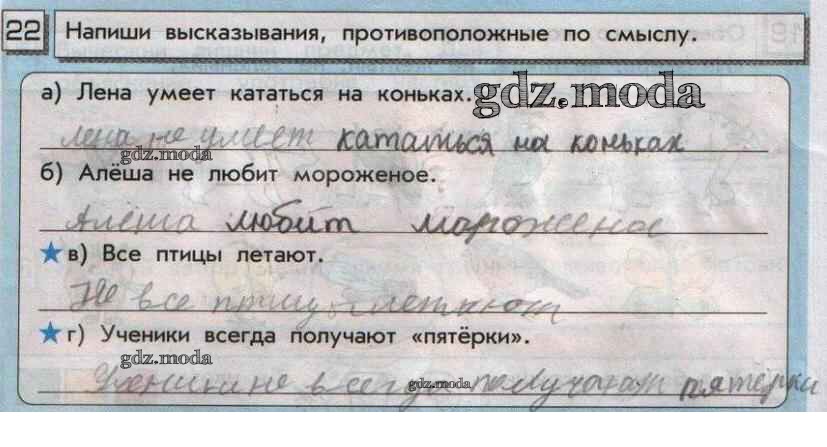 22 Напиши высказывания, противоположные по смыслу.
а) Лена умеет кататься на коньках. gdz.moda
Лена не умеет кататься на коньках
gdz.moda
б) Алёша не любит мороженое.
Алёша любит мороженое
★ в) Все птицы летают.
Не все птицы летают
★ г) Ученики всегда получают «пятёрки».
gdz.moda
Ученики не всегда получают пятёрки
gdz.moda